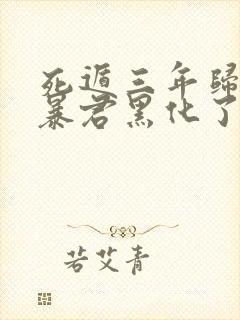 死遁三年歸
暴君黑化了
若艾青